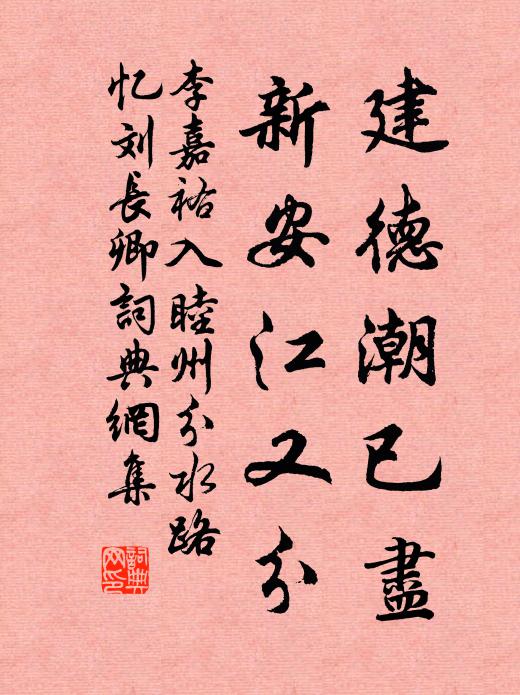 建德潮已盡
新安江又分
李嘉祐入睦州分水路
忆刘長卿詞典網集
詞典网印